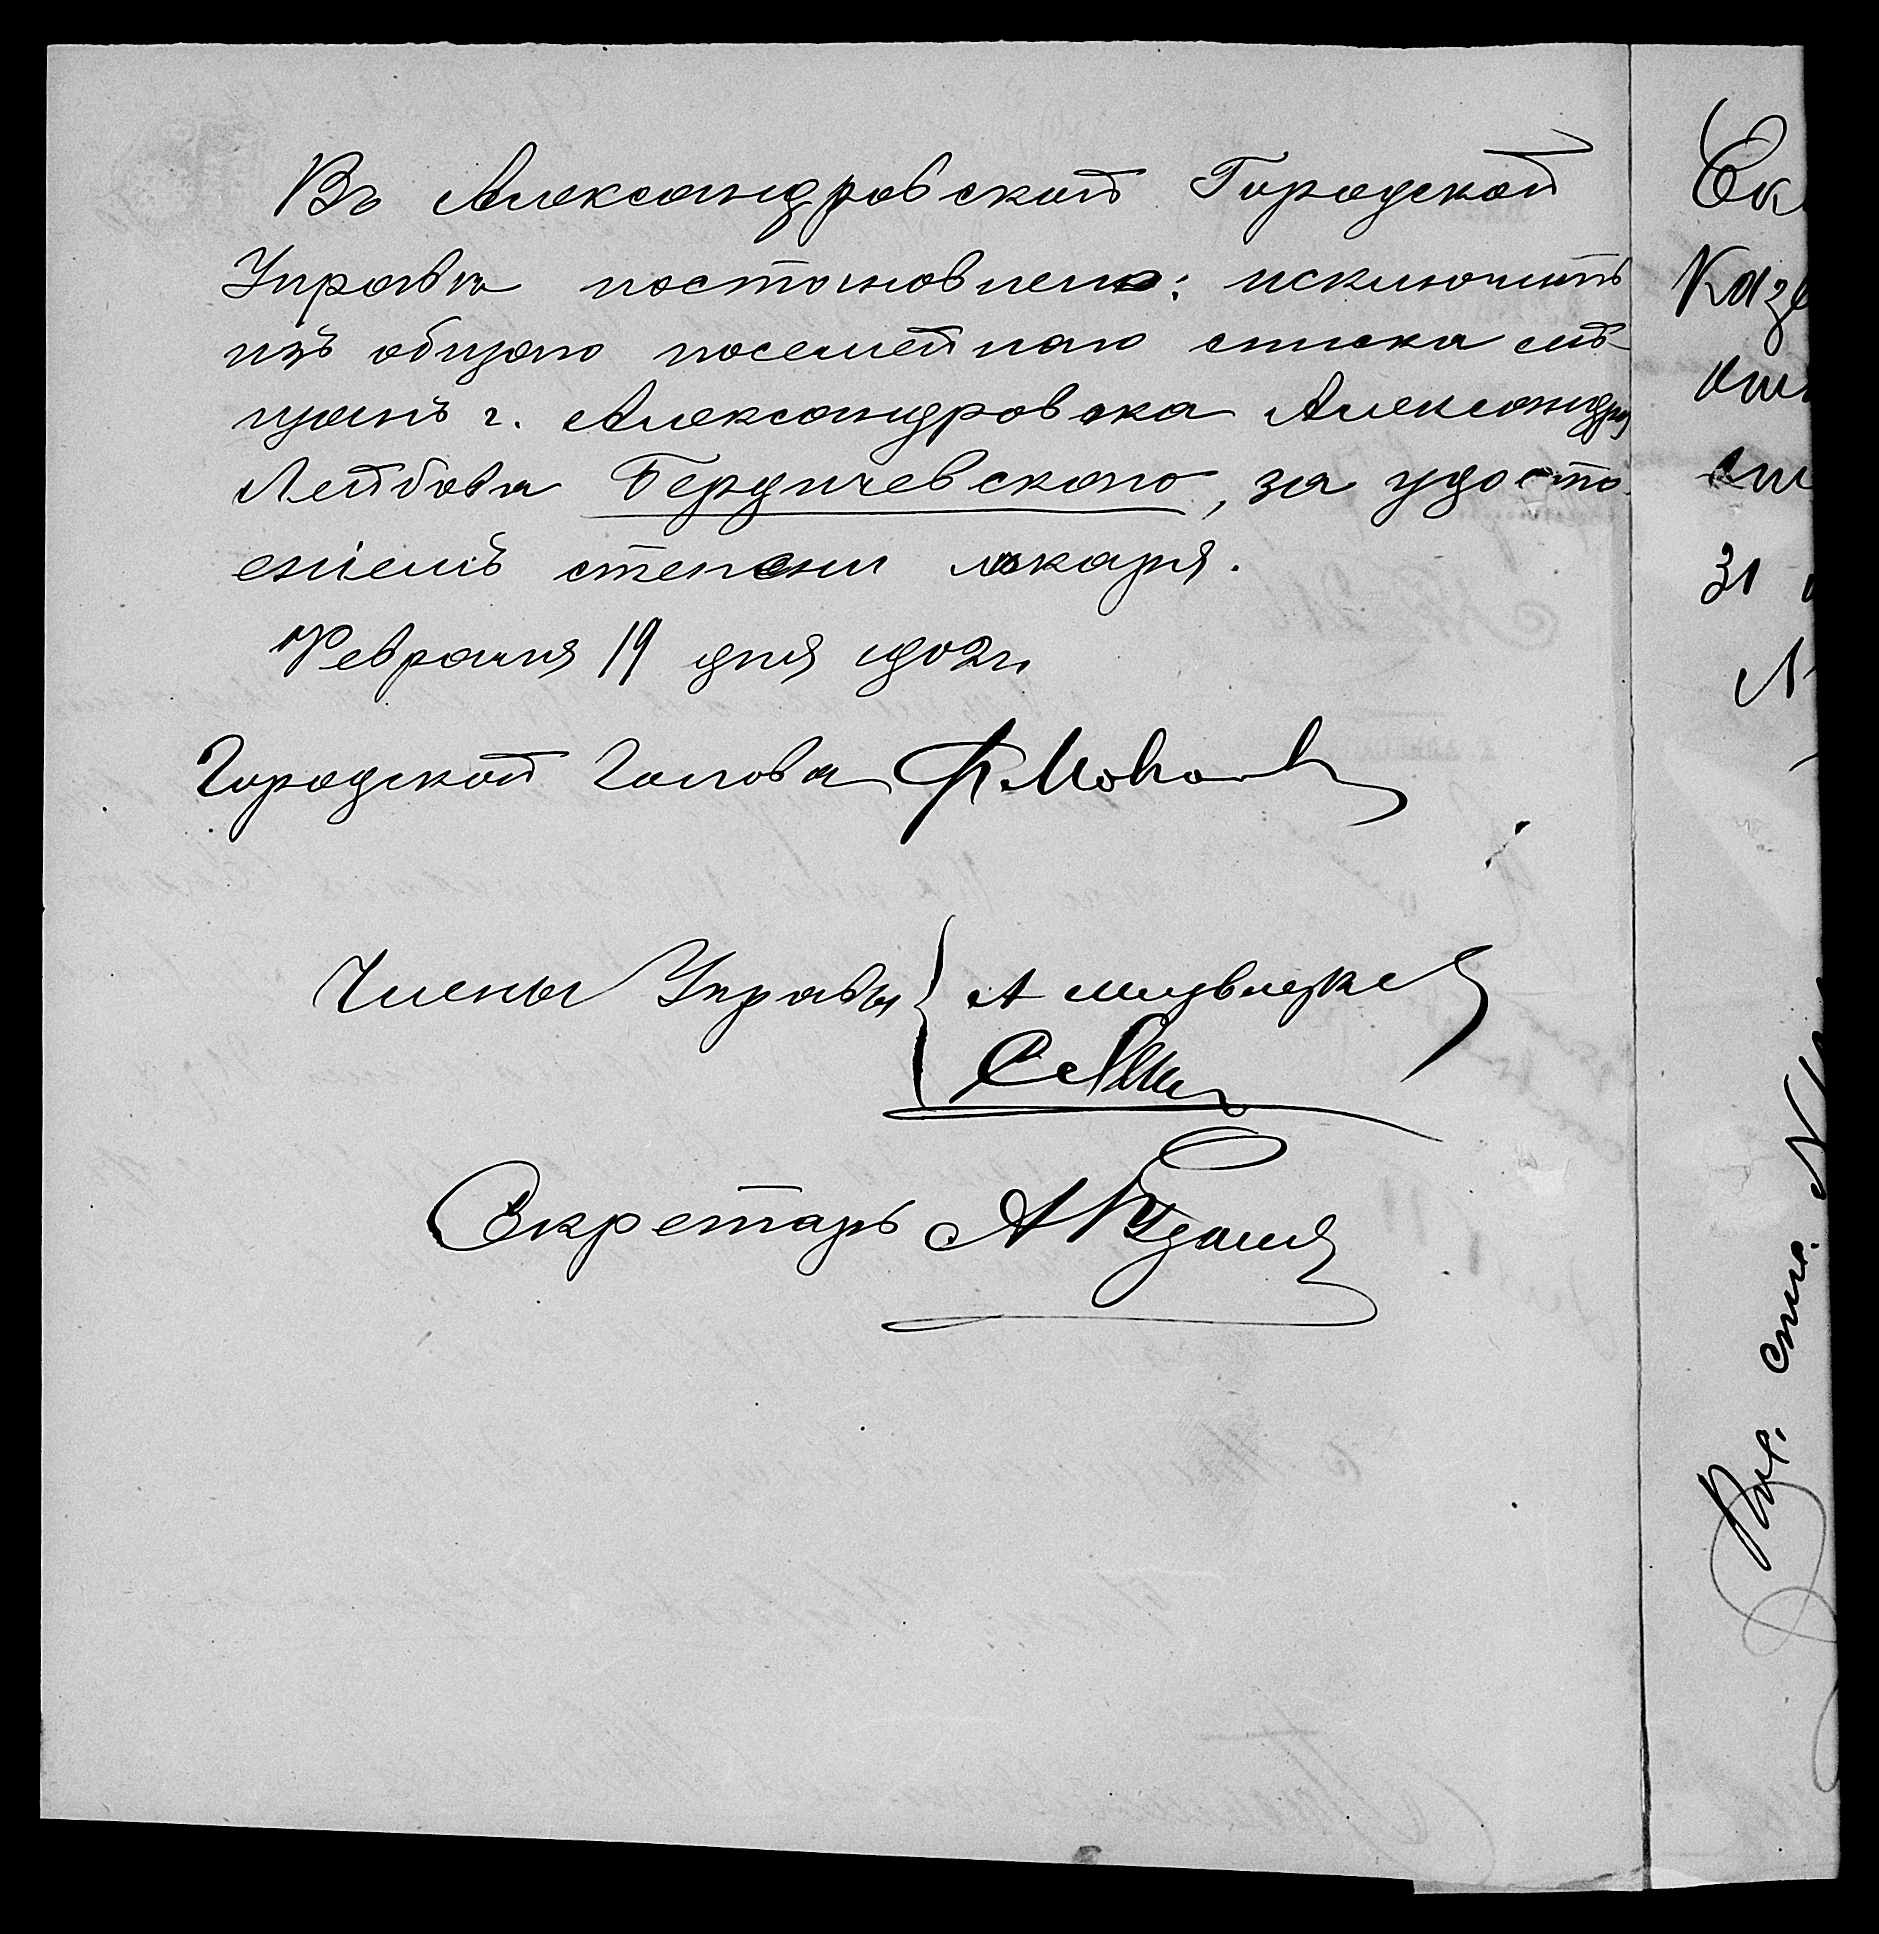 Въ Александровской Городской
Управѣ постановлено: исключить
изъ общаго посемейнаго списка мѣ-
щанъ г. Александровска Александра
Лейбова Бердичевскаго, за удосто-
еніемъ степени лѣкаря.
Февраля 19 дня 1902 г.
Городской Голова Ф. Мовчанов
Члены Управы
Секретарь А
Ек
Казе
31